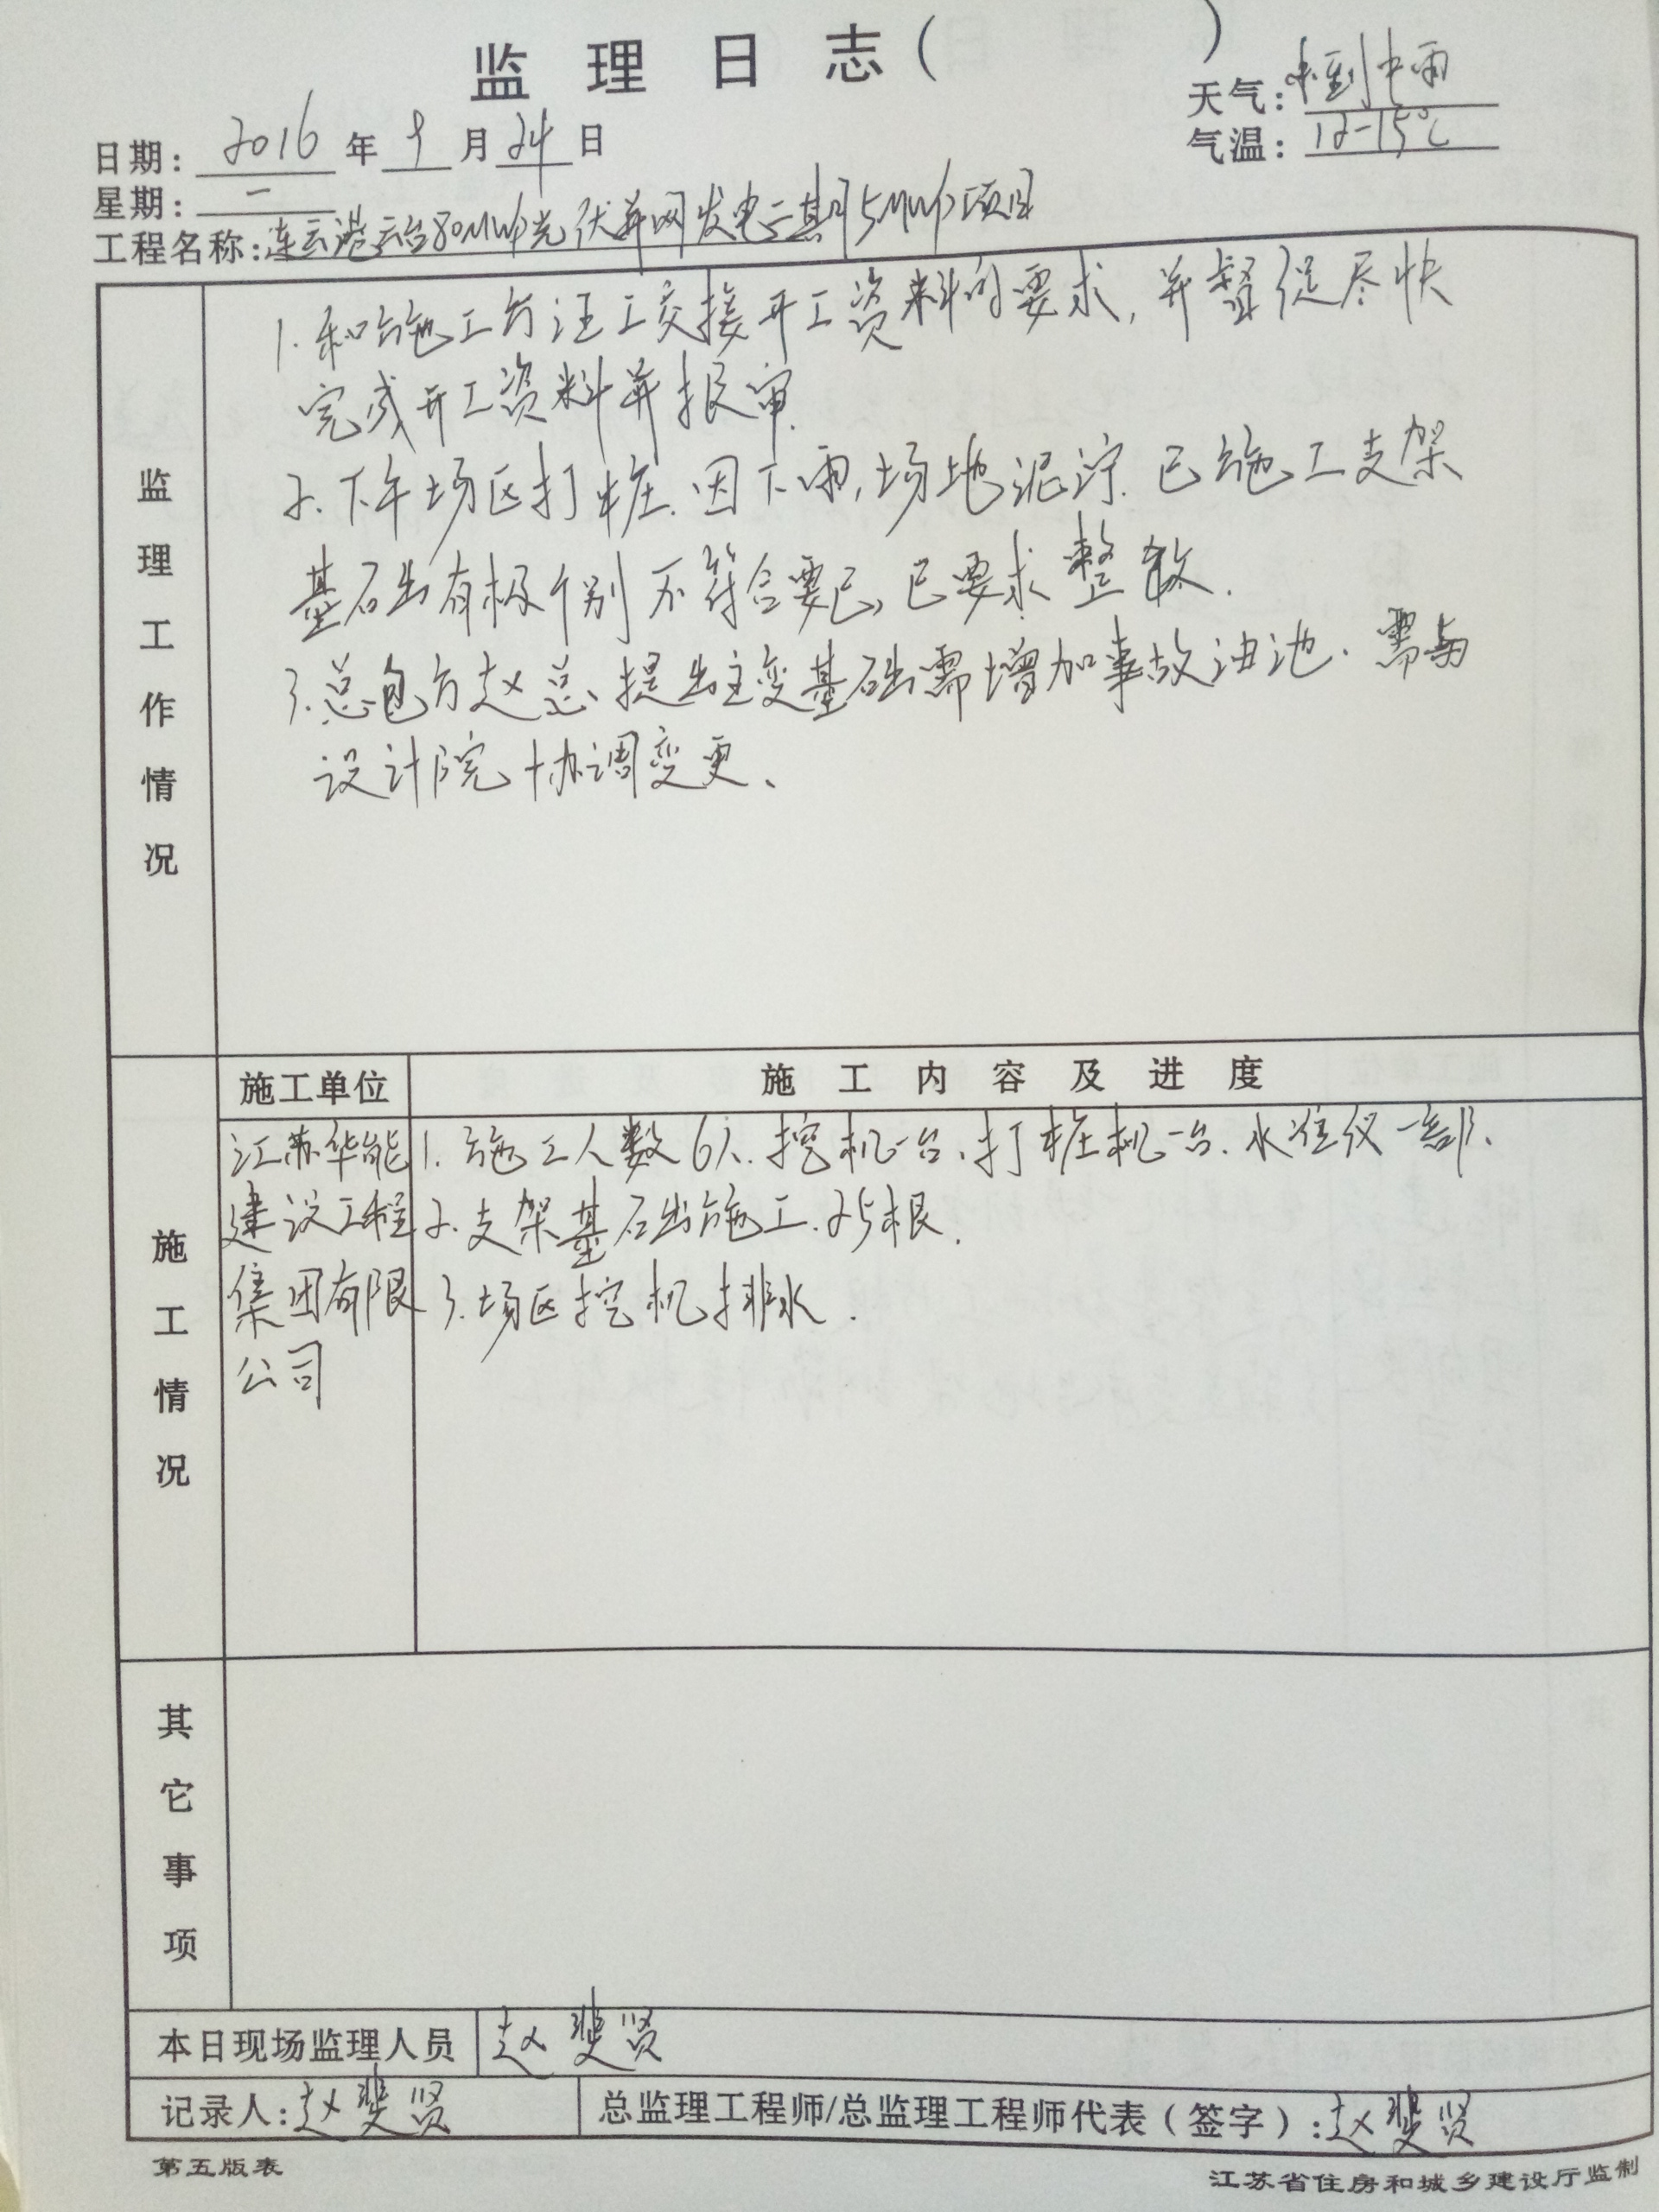 监理日志(　　)
天气:小到中雨
日期: 2016 年 9 月 24 日
气温: 12-15℃
星期: 一
工程名称:连云港云台80MWp光伏并网发电二期5MWp项目
监理工作情况
1.和施工方汪工交接开工资料的要求,并督促尽快
完成开工资料并报审.
2.下午场区打桩.因下雨,场地泥泞.已施工支架
基础有极个别不符合要已,已要求整改.
3.总包方赵总、提出主变基础需增加事故油池.需与
设计院协调变更、
施工情况
施工单位 施工内容及进度
江苏华能 1.施工人数6人.挖机一台、打桩机一台.水准仪一部、
建设工程 2.支架基础施工.25根.
集团有限 3.场区挖机排水.
公司
其它事项
本日现场监理人员 赵斐贤
记录人:赵斐贤 总监理工程师/总监理工程师代表(签字):赵斐贤
第五版表 江苏省住房和城乡建设厅监制